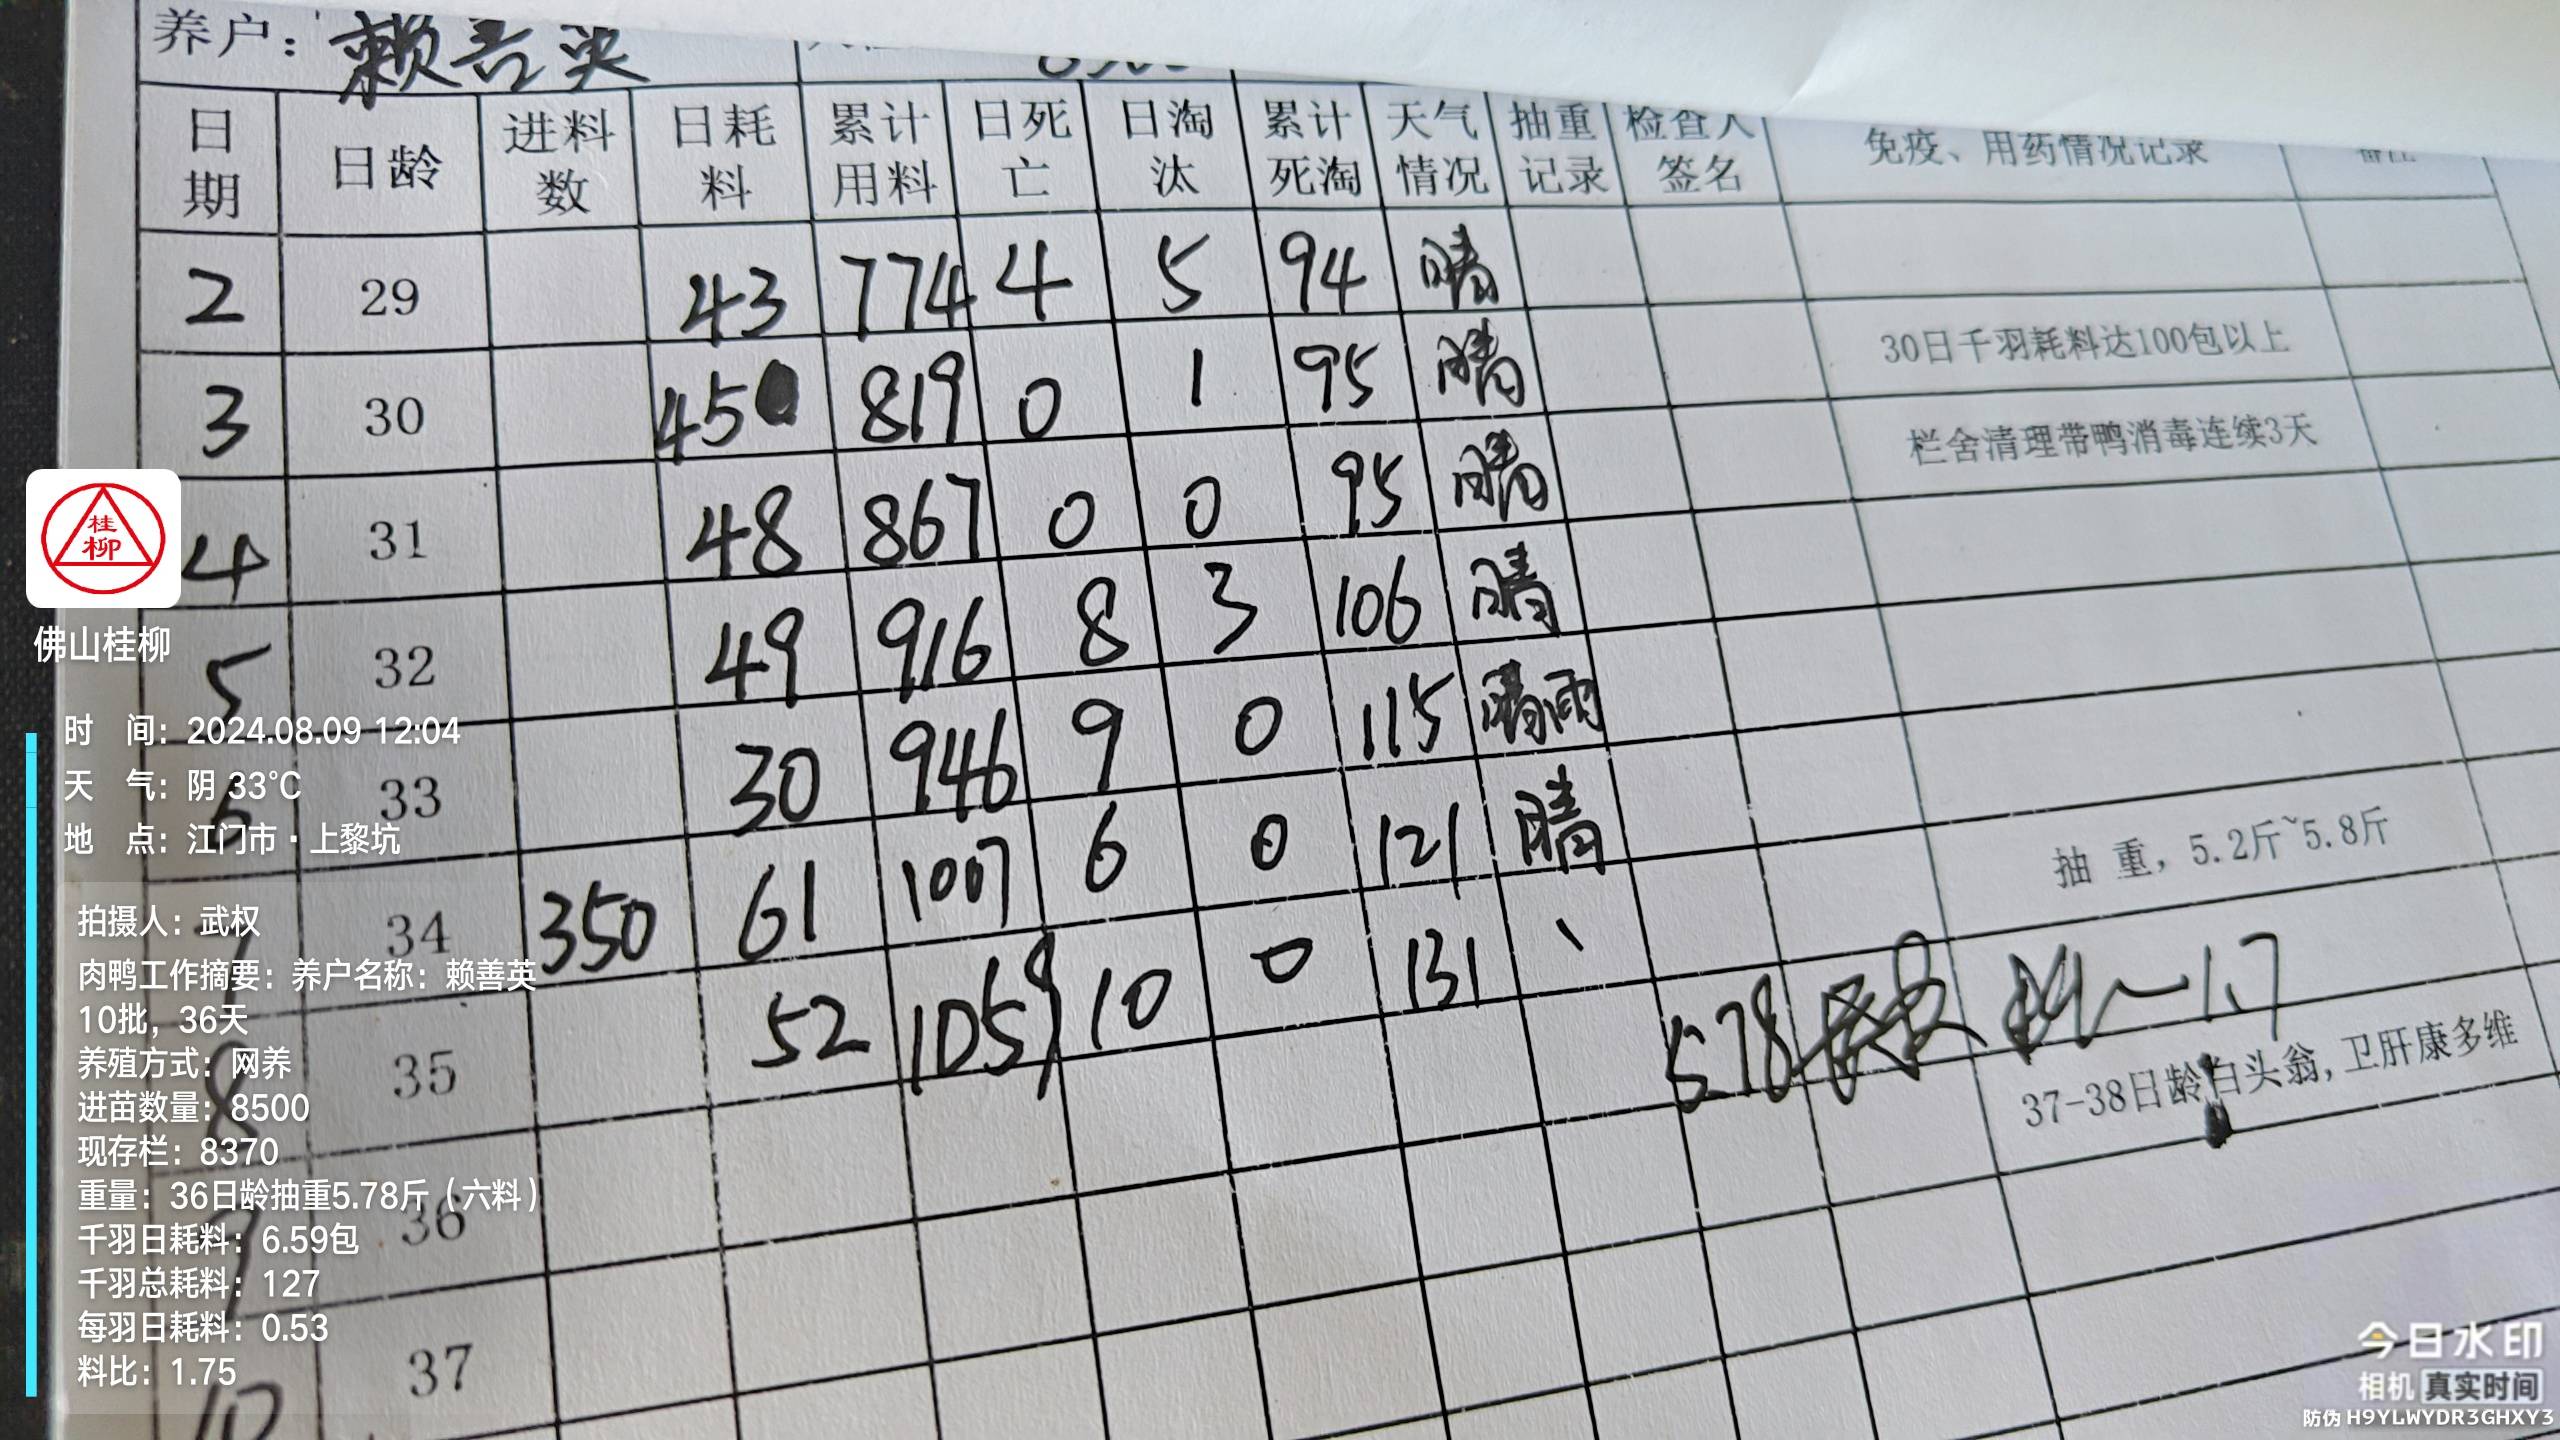 养户：赖善英
日期 日龄 进料数 日耗料 累计用料 日死亡 日淘汰 累计死淘 天气情况 抽重记录 检查人签名 免疫、用药情况记录 备注
2 29 43 774 4 5 94 晴
3 30 45 819 0 1 95 晴 30日千羽耗料达100包以上
4 31 48 867 0 0 95 晴 栏舍清理带鸭消毒连续3天
5 32 49 916 8 3 106 晴
6 33 30 946 9 0 115 晴雨
7 34 350 61 1007 6 0 121 晴 抽 重，5.2斤~5.8斤
8 35 52 1059 10 0 131 、 5.78 1.7
9 36 37-38日龄白头翁,卫肝康多维
10 37
桂柳
佛山桂柳
时 间：2024.08.09 12:04
天 气：阴 33℃
地 点：江门市·上黎坑
拍摄人：武权
肉鸭工作摘要：养户名称：赖善英
10批，36天
养殖方式：网养
进苗数量：8500
现存栏：8370
重量：36日龄抽重5.78斤（六料）
千羽日耗料：6.59包
千羽总耗料：127
每羽日耗料：0.53
料比：1.75
今日水印
相机 真实时间
防伪 H9YLWYDR3GHXY3